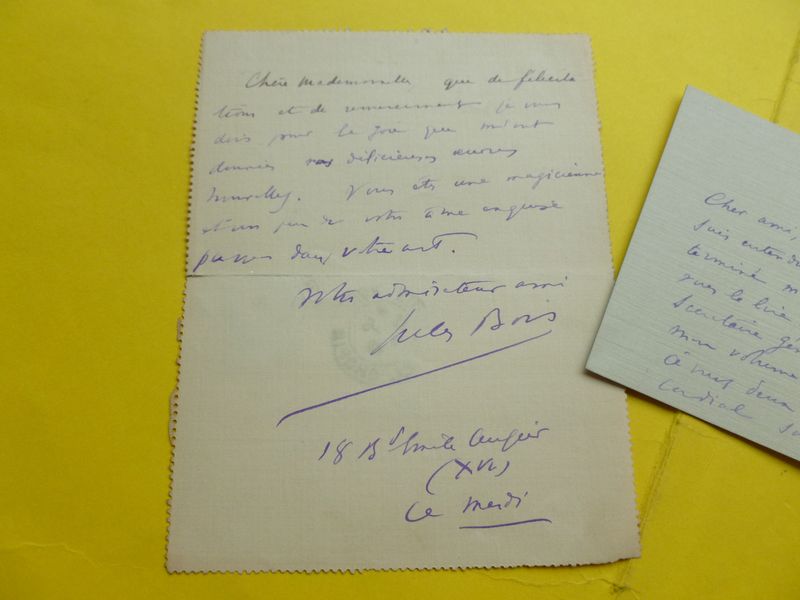 Chère Mademoiselle que de félicita
tions et de remerciements je vous
dois pour la joie que m'ont
données vos délicieuses œuvres
Vous êtes une magicienne
et un peu de votre âme
passe dans votre art.
votre admirateur ami
Jules Bois
18 Bd Emile Augier
(XVI)
Ce mardi
Cher ami,
suis entendu
terminé m
vers le livre
Secrétaire gén
mon volume
à vous deux
cordial s